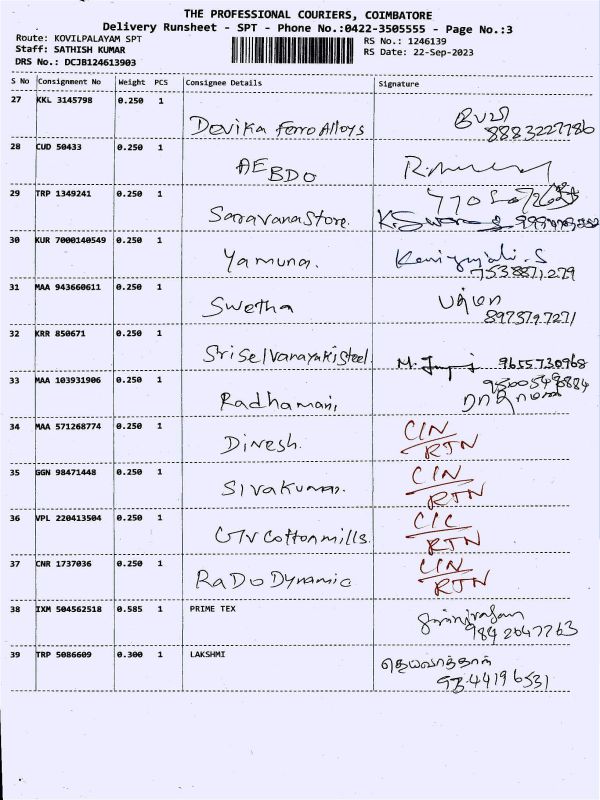 THE PROFESSIONAL COURIERS, COIMBATORE
Delivery Runsheet - SPT - Phone No.:0422-3505555 - Page No.:3
Route: KOVILPALAYAM SPT
RS No.: 1246139
Staff: SATHISH KUMAR
RS Date: 22-Sep-2023
DRS No.: DCJB124613903
S No Consignment No Weight PCS Consignee Details Signature
27 KKL 3145798 0.250 1 Devika Ferro Alloys பேபி
8883227786
28 CUD 50433 0.250 1 AEBDO
29 TRP 1349241 0.250 1 Saravana Store.
30 KUR 7000140549 0.250 1 Yamuna.
7538871279
31 MAA 943660611 0.250 1 Swetha
8973797271
32 KRR 850671 0.250 1 Sri Selvanayaki Steel. 9655730968
33 MAA 103931906 0.250 1 Radhamani,
34 MAA 571268774 0.250 1 Dinesh. CIN
RTN
35 GGN 98471448 0.250 1 Sivakumar. CIN
RTN
36 VPL 220413504 0.250 1 GTV Cottonmills. CIC
RTN
37 CNR 1737036 0.250 1 RaDo Dynamic CIN
RTN
38 IXM 504562518 0.585 1 PRIME TEX
9842647763
39 TRP 5086609 0.300 1 LAKSHMI தெய்வாத்தாள்
9344196531